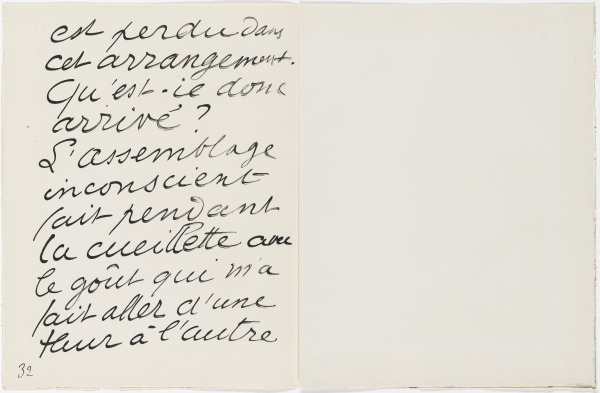 est perdu dans
cet arrangement.
Qu'est-ie donc
arrivé ?
L'assemblage
inconscient
fait pendant
la cueillette avec
le goût qui m'a
fait aller d'une
fleur à l'autre
32